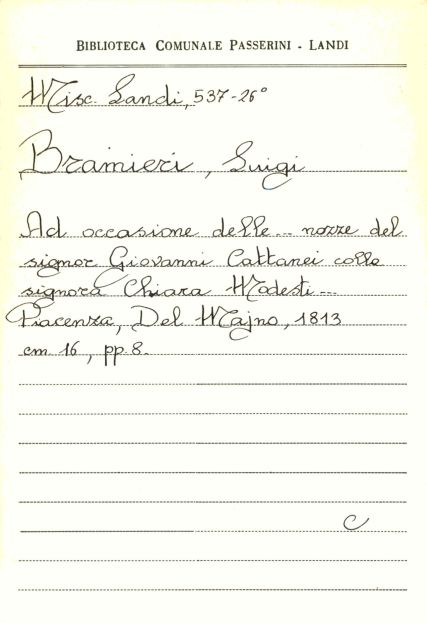 BIBLIOTECA COMUNALE PASSERINI - LANDI
Misc. Landi, 537-26°
Bramieri, Luigi
Ad occasione delle... nozze del
signor Giovanni Cattanei colla
signora Chiara Modesti...
Piacenza, Del Majno, 1813
cm 16, pp. 8.
C